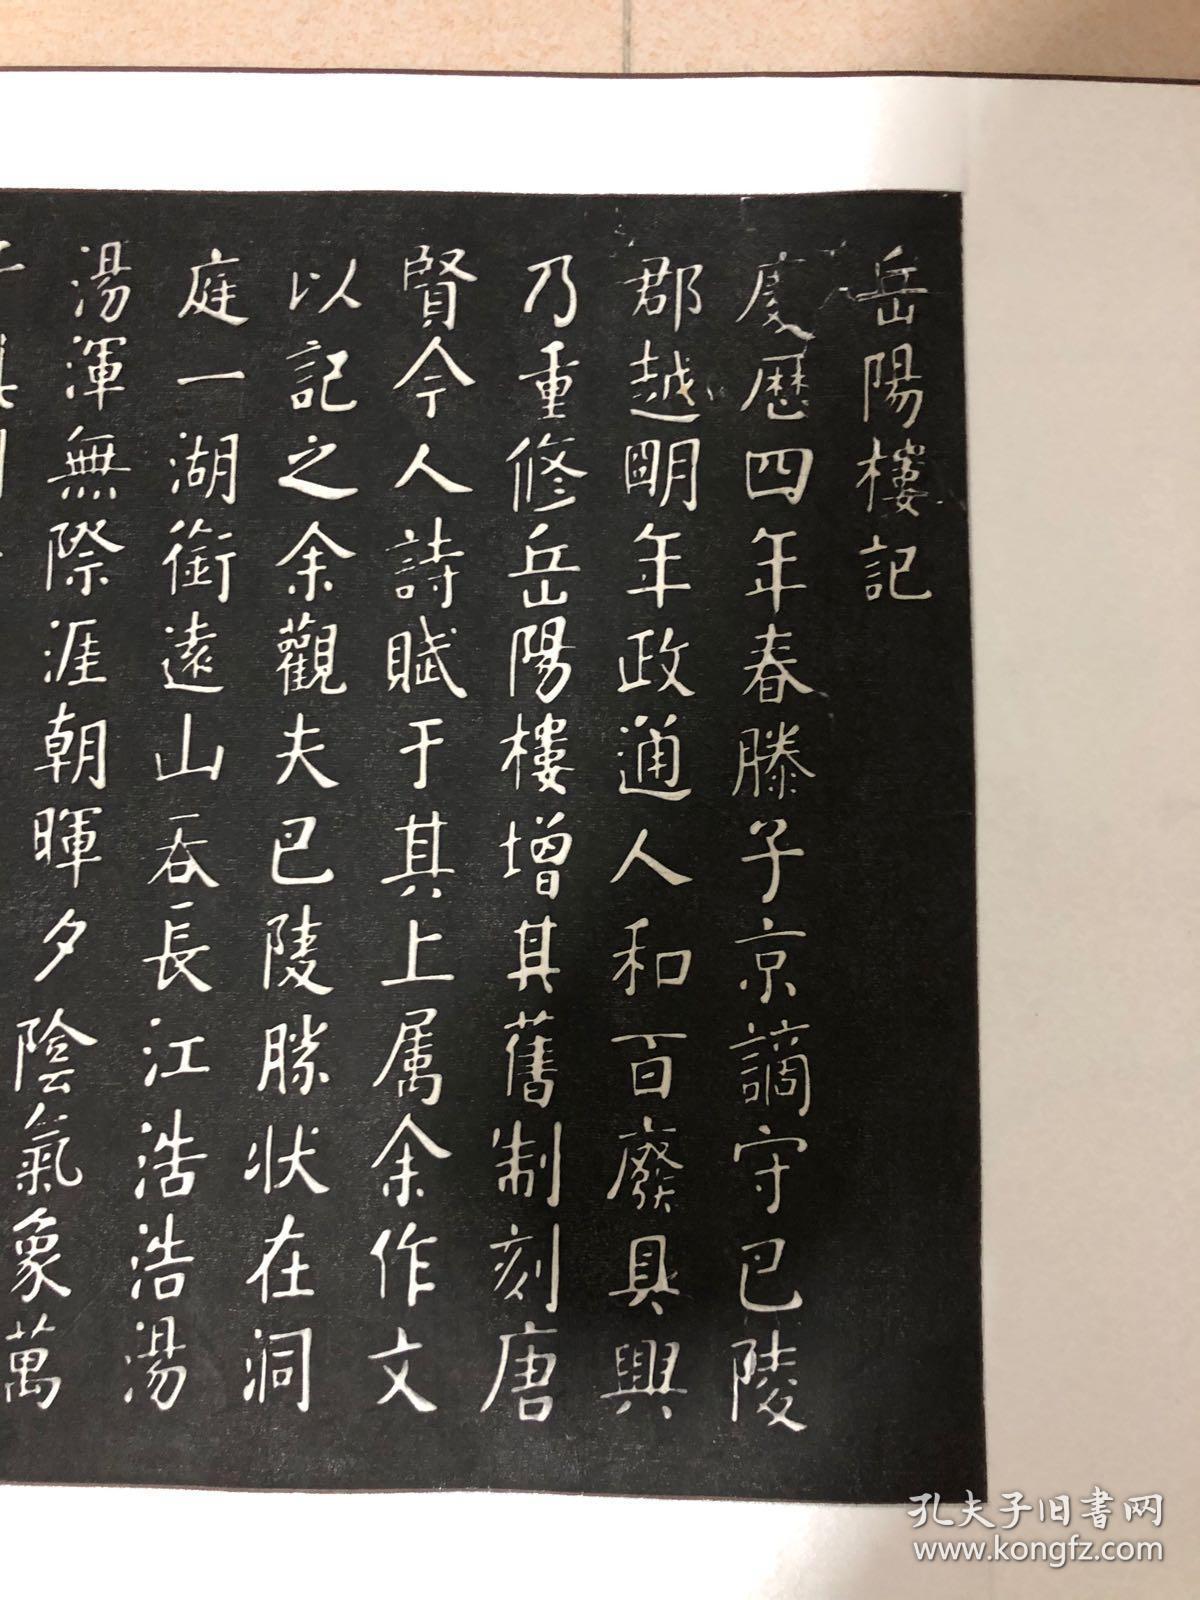 岳陽樓記
慶曆四年春滕子京謫守巴陵
郡越明年政通人和百廢具興
乃重修岳陽樓增其舊制刻唐
賢今人詩賦于其上属余作文
以記之余觀夫巴陵勝状在洞
庭一湖銜遠山吞長江浩浩湯
湯渾無際涯朝暉夕陰氣象萬
孔夫子旧書网
www.kongfz.com